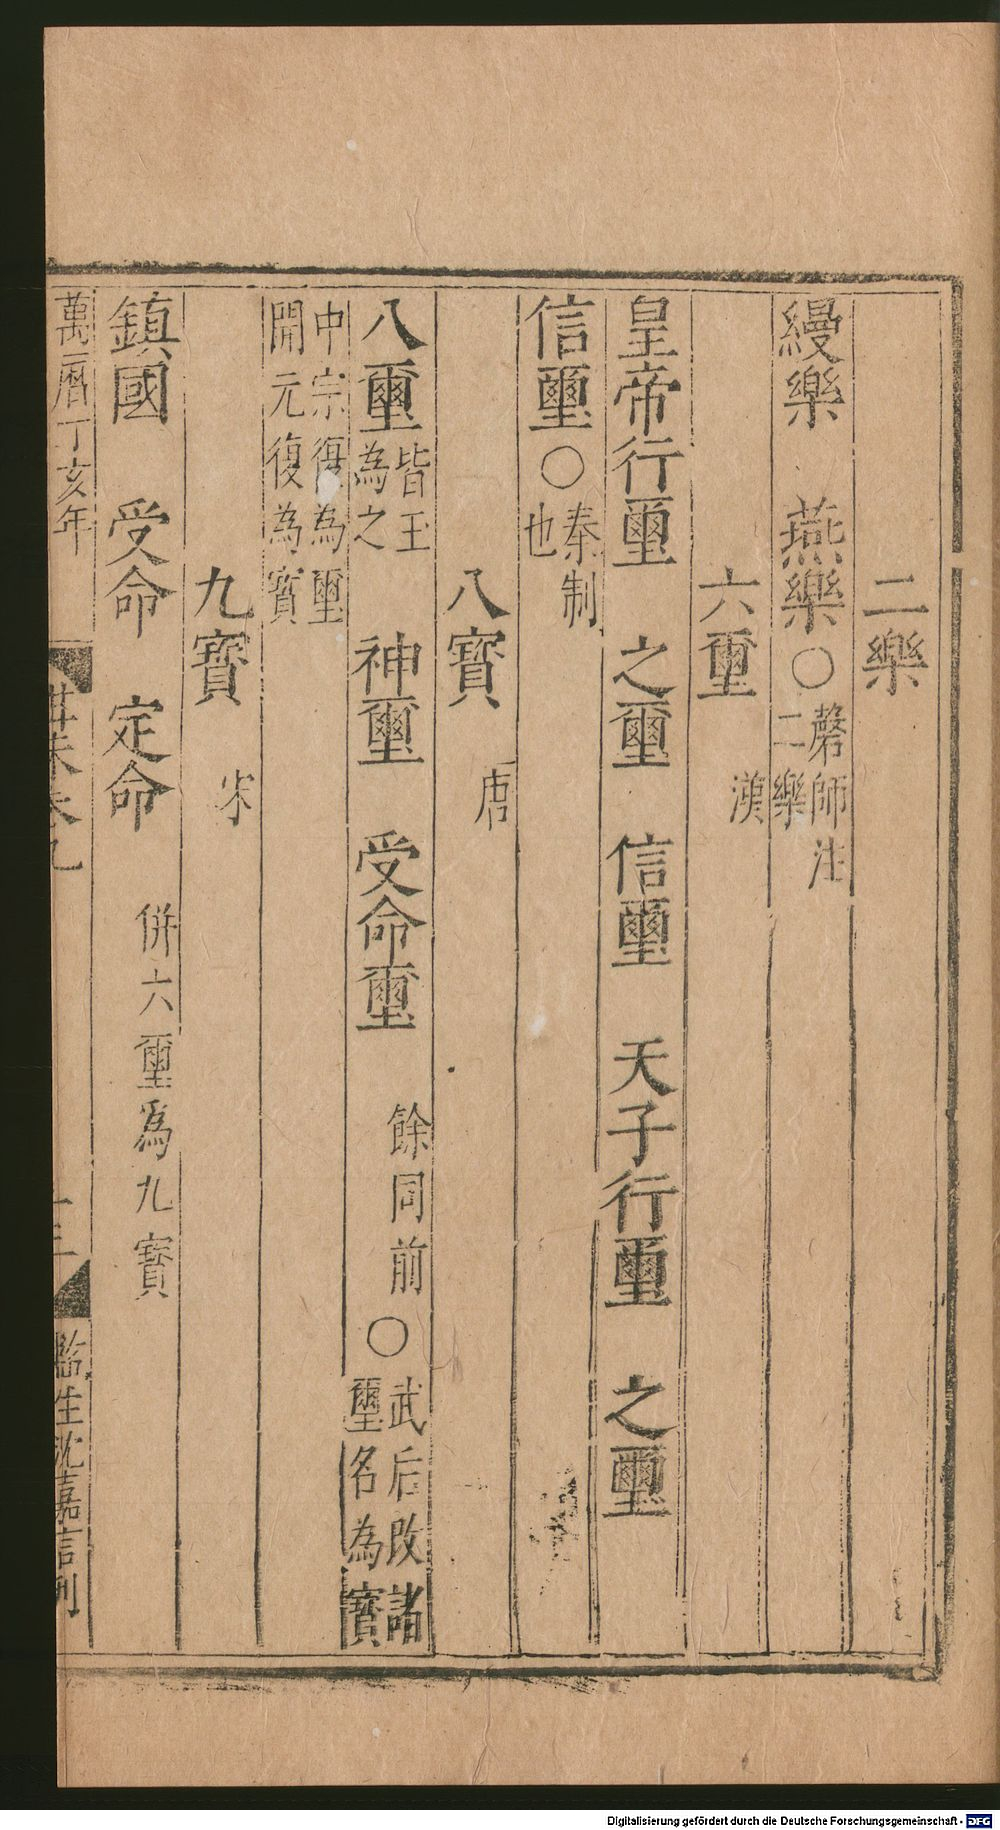 二樂
縵樂　燕樂○磬師注二樂
六璽　漢
皇帝行璽　之璽　信璽　天子行璽　之璽
信璽○秦制也
八寶　唐
八璽皆玉為之　神璽　受命璽　餘同前○武后改諸璽名為寶
中宗復為璽開元復為寶
九寶　宋
鎮國　受命　定命　併六璽爲九寶
萬曆丁亥年　卷九　十三　監生沈嘉言刊
Digitalisierung gefördert durch die Deutsche Forschungsgemeinschaft - DFG